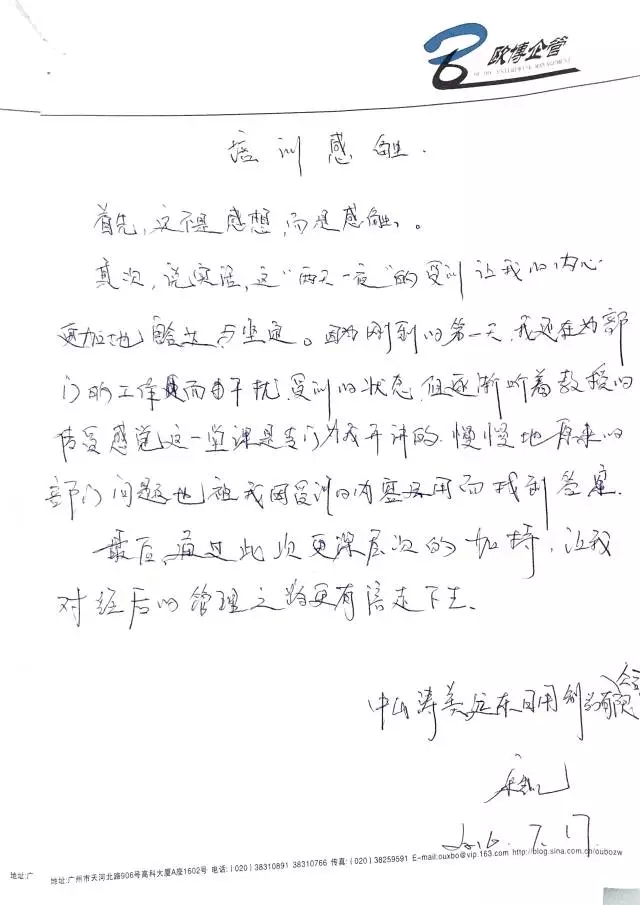 欧博企管
OU BO ENTERPRISE MANAGEMENT
培训感触.
首先,这不是感想,而是感触。
其次,说实话,这"两天一夜"的受训让我的内心
更加地豁达与坚定。因为刚到的第一天,我还在为部
门的工作而由干扰受训的状态,但逐渐听着教授的
传受感觉这一堂课是专门为我开讲的,慢慢地原来的
部门问题也被我因受训的内容运用而找到答案.
最后,通过此次更深层次的加持,让我
对经后的管理之路更有信走下去、
中山涛美远东日用制品有限公司
2016.7.17
地址:广
地址:广州市天河北路906号高科大厦A座1602号 电话:(020)38310891 38310766 传真:(020)38259591 E-mail:ouxbo@vip.163.com http://blog.sina.com.cn/oubozw